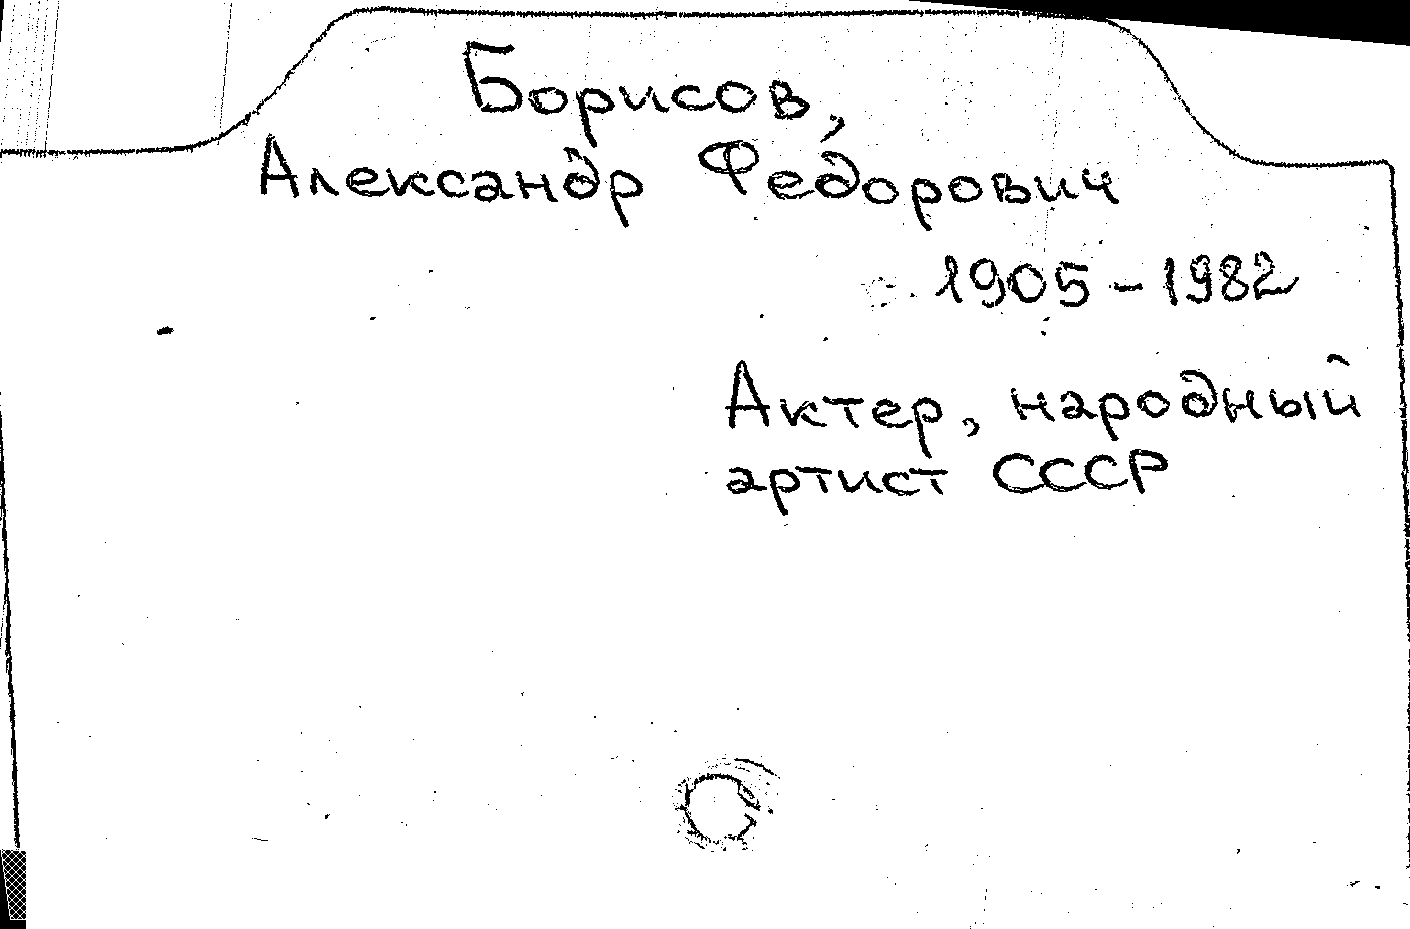 Борисов,
Александр Федорович
1905-1982
Актер, народный
артист СССР